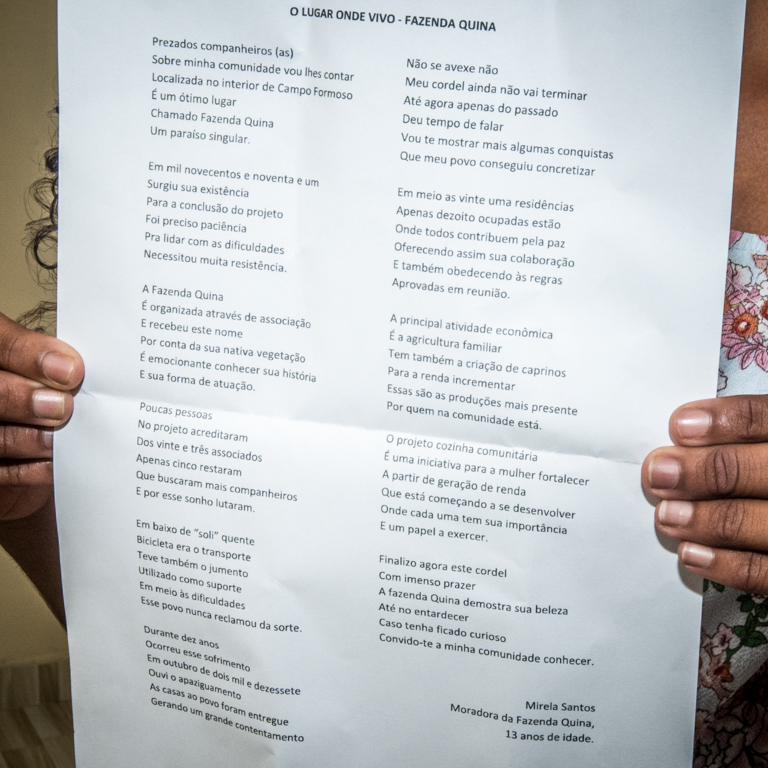 O LUGAR ONDE VIVO - FAZENDA QUINA
Prezados companheiros (as)
Sobre minha comunidade vou lhes contar
Localizada no interior de Campo Formoso
É um ótimo lugar
Chamado Fazenda Quina
Um paraíso singular.
Em mil novecentos e noventa e um
Surgiu sua existência
Para a conclusão do projeto
Foi preciso paciência
Pra lidar com as dificuldades
Necessitou muita resistência.
A Fazenda Quina
É organizada através de associação
E recebeu este nome
Por conta da sua nativa vegetação
É emocionante conhecer sua história
E sua forma de atuação.
Poucas pessoas
No projeto acreditaram
Dos vinte e três associados
Apenas cinco restaram
Que buscaram mais companheiros
E por esse sonho lutaram.
Em baixo de "soli" quente
Bicicleta era o transporte
Teve também o jumento
Utilizado como suporte
Em meio às dificuldades
Esse povo nunca reclamou da sorte.
Durante dez anos
Ocorreu esse sofrimento
Em outubro de dois mil e dezessete
Ouvi o apaziguamento
As casas ao povo foram entregue
Gerando um grande contentamento
Não se avexe não
Meu cordel ainda não vai terminar
Até agora apenas do passado
Deu tempo de falar
Vou te mostrar mais algumas conquistas
Que meu povo conseguiu concretizar
Em meio as vinte uma residências
Apenas dezoito ocupadas estão
Onde todos contribuem pela paz
Oferecendo assim sua colaboração
E também obedecendo às regras
Aprovadas em reunião.
A principal atividade econômica
É a agricultura familiar
Tem também a criação de caprinos
Para a renda incrementar
Essas são as produções mais presente
Por quem na comunidade está.
O projeto cozinha comunitária
É uma iniciativa para a mulher fortalecer
A partir de geração de renda
Que está começando a se desenvolver
Onde cada uma tem sua importância
E um papel a exercer.
Finalizo agora este cordel
Com imenso prazer
A fazenda Quina demostra sua beleza
Até no entardecer
Caso tenha ficado curioso
Convido-te a minha comunidade conhecer.
Mirela Santos
Moradora da Fazenda Quina,
13 anos de idade.